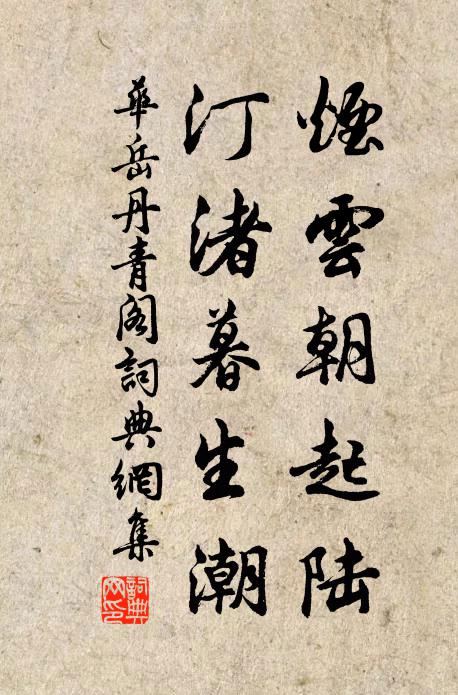 煙雲朝起陆
汀渚暮生潮
華岳丹青阁詞典網集
詞典